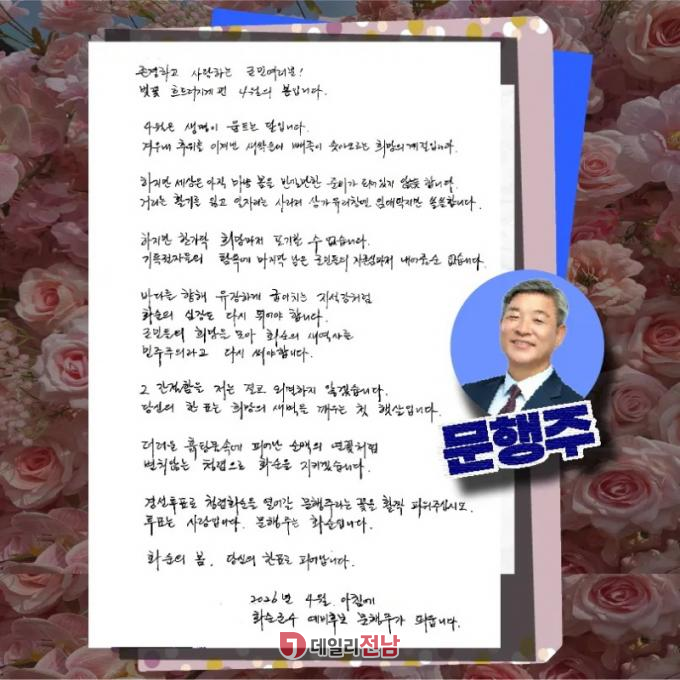 존경하고 사랑하는 군민여러분!
벚꽃 흐드러지게 핀 4월의 봄입니다.
4월은 생명이 움트는 달입니다.
겨우내 추위를 이겨낸 새싹들이 빼꼼이 솟아오르는 희망의 계절입니다.
하지만 세상은 아직 따뜻한 봄을 만끽할만한 준비가 되어있지 않은 듯 합니다.
거리는 활기를 잃고 일자리는 사라져 상가 유리창엔 임대딱지만 쓸쓸합니다.
하지만 한가닥 희망마저 포기할 수 없습니다.
기득권자들의 탐욕에 마지막 남은 군민들의 자존심마저 내어줄순 없습니다.
바다를 향해 유장하게 굽이치는 지석강처럼
화순의 심장은 다시 뛰어야 합니다.
군민들의 희망을 모아 화순의 새역사는
민주주의라고 다시 써야합니다.
그 간절함을 저는 결코 외면하지 않겠습니다.
당신의 한 표는 희망의 새벽을 깨우는 첫 햇살입니다.
더러운 흙탕물속에 피어난 순백의 연꽃처럼
변치않는 청렴으로 화순을 지키겠습니다.
경선투표로 청렴화순을 열어갈 문행주라는 꽃을 활짝 피워주십시오.
투표는 사랑입니다. 문행주는 화순입니다.
화순의 봄, 당신의 한표로 피어납니다.
2026년 4월 아침에
화순군수 예비후보 문행주가 띄웁니다.
문행주
데일리전남